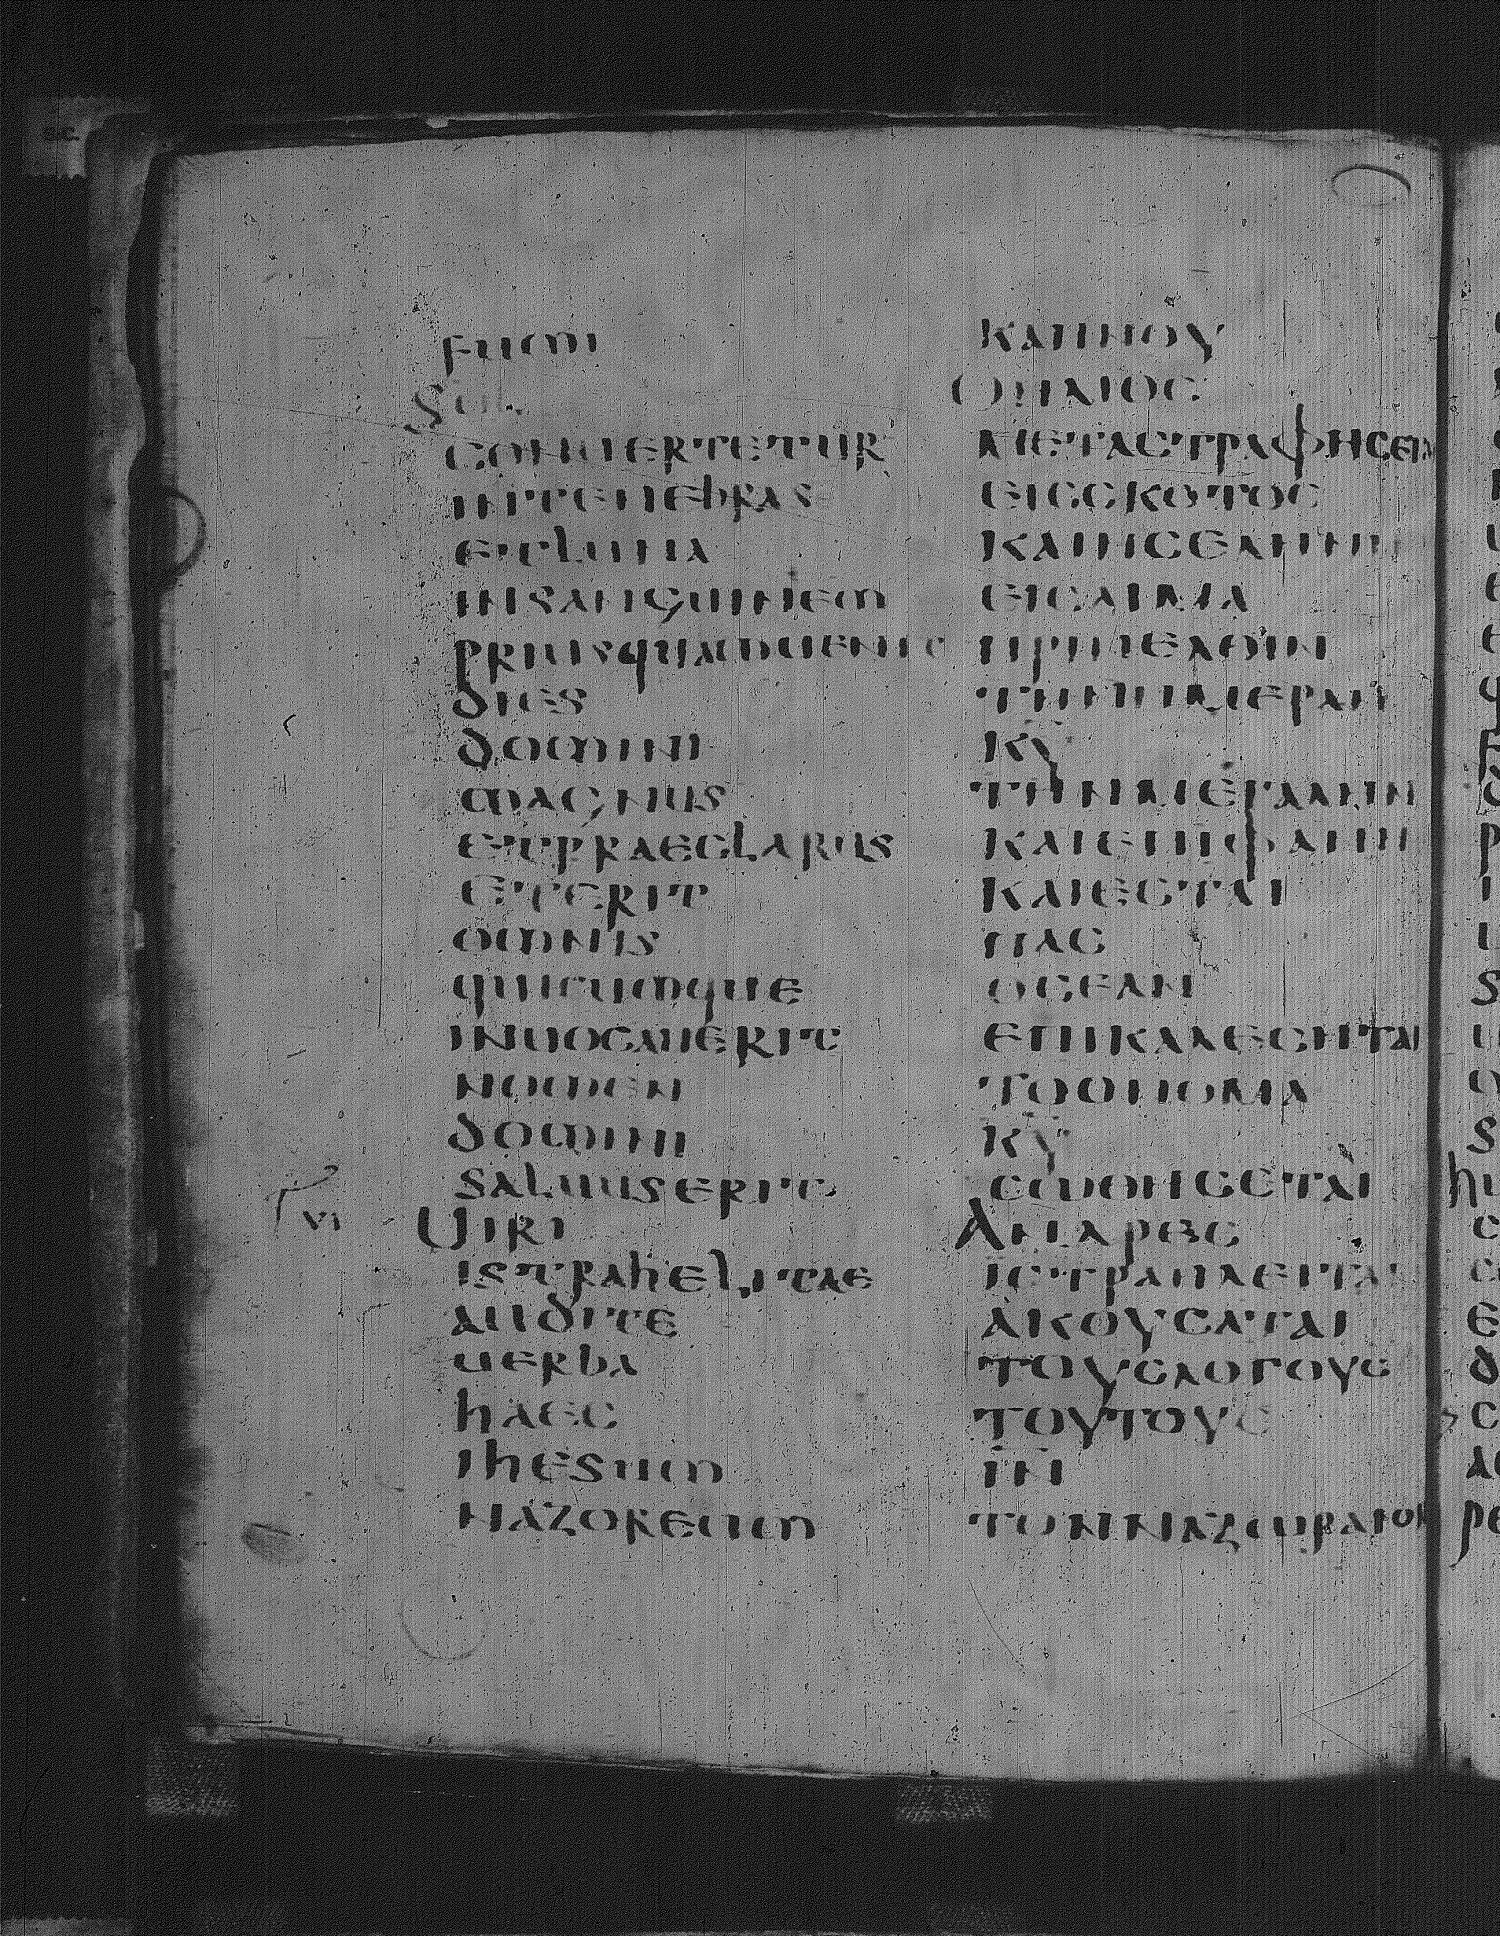 fumi
Sol
conuertetur
intenebras
etluna
insanguinem
priusquamueniat
dies
domini
magnus
etpraeclarus
eterit
omnis
quicumque
inuocauerit
nomen
domini
saluuserit
VI Uiri
istrahelitae
audite
uerba
haec
ihesum
nazoreum
ΚΑΠΝΟΥ
ΟΗΛΙΟΣ
ΜΕΤΑCΤΡΑΦΗCΕΤΑΙ
ΕΙCCΚΟΤΟC
ΚΑΙΗCΕΛΗΝΗ
ΕΙCΑΙΜΑ
ΠΡΙΝΕΛΘΙΝ
ΤΗΝΗΜΕΡΑΝ
ΚΥ
ΤΗΝΜΕΓΑΛΗΝ
ΚΑΙΕΠΙΦΑΝΗ
ΚΑΙΕCΤΑΙ
ΠΑC
ΟCΕΑΝ
ΕΠΙΚΑΛΕCΗΤΑΙ
ΤΟΟΝΟΜΑ
ΚΥ
CΩΘΗCΕΤΑΙ
ΑΝΔΡΕC
ΙCΤΡΑΗΛΕΙΤΑΙ
ΑΚΟΥCΑΤΑΙ
ΤΟΥCΛΟΓΟΥC
ΤΟΥΤΟΥC
ΙΝ
ΤΟΝΝΑΖΩΡΑΙΟΝ